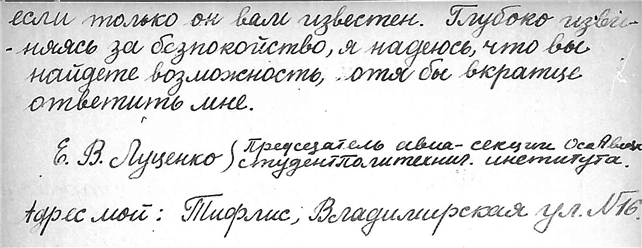 если только он вам известен. Глубоко изви-
-няясь за безпокойство, я надеюсь, что вы
найдете возможность, хотя бы вкратце
ответить мне.
Е. В. Луценко (Председатель авиа-секции
студент Политехнич. института.
Адрес мой: Тифлис, Владимирская ул. №16.